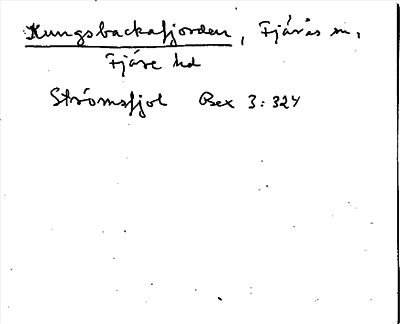 Kungsbackafjorden, Fjärås sn,
Fjäre hd
Strömsfjol Bex 3:324